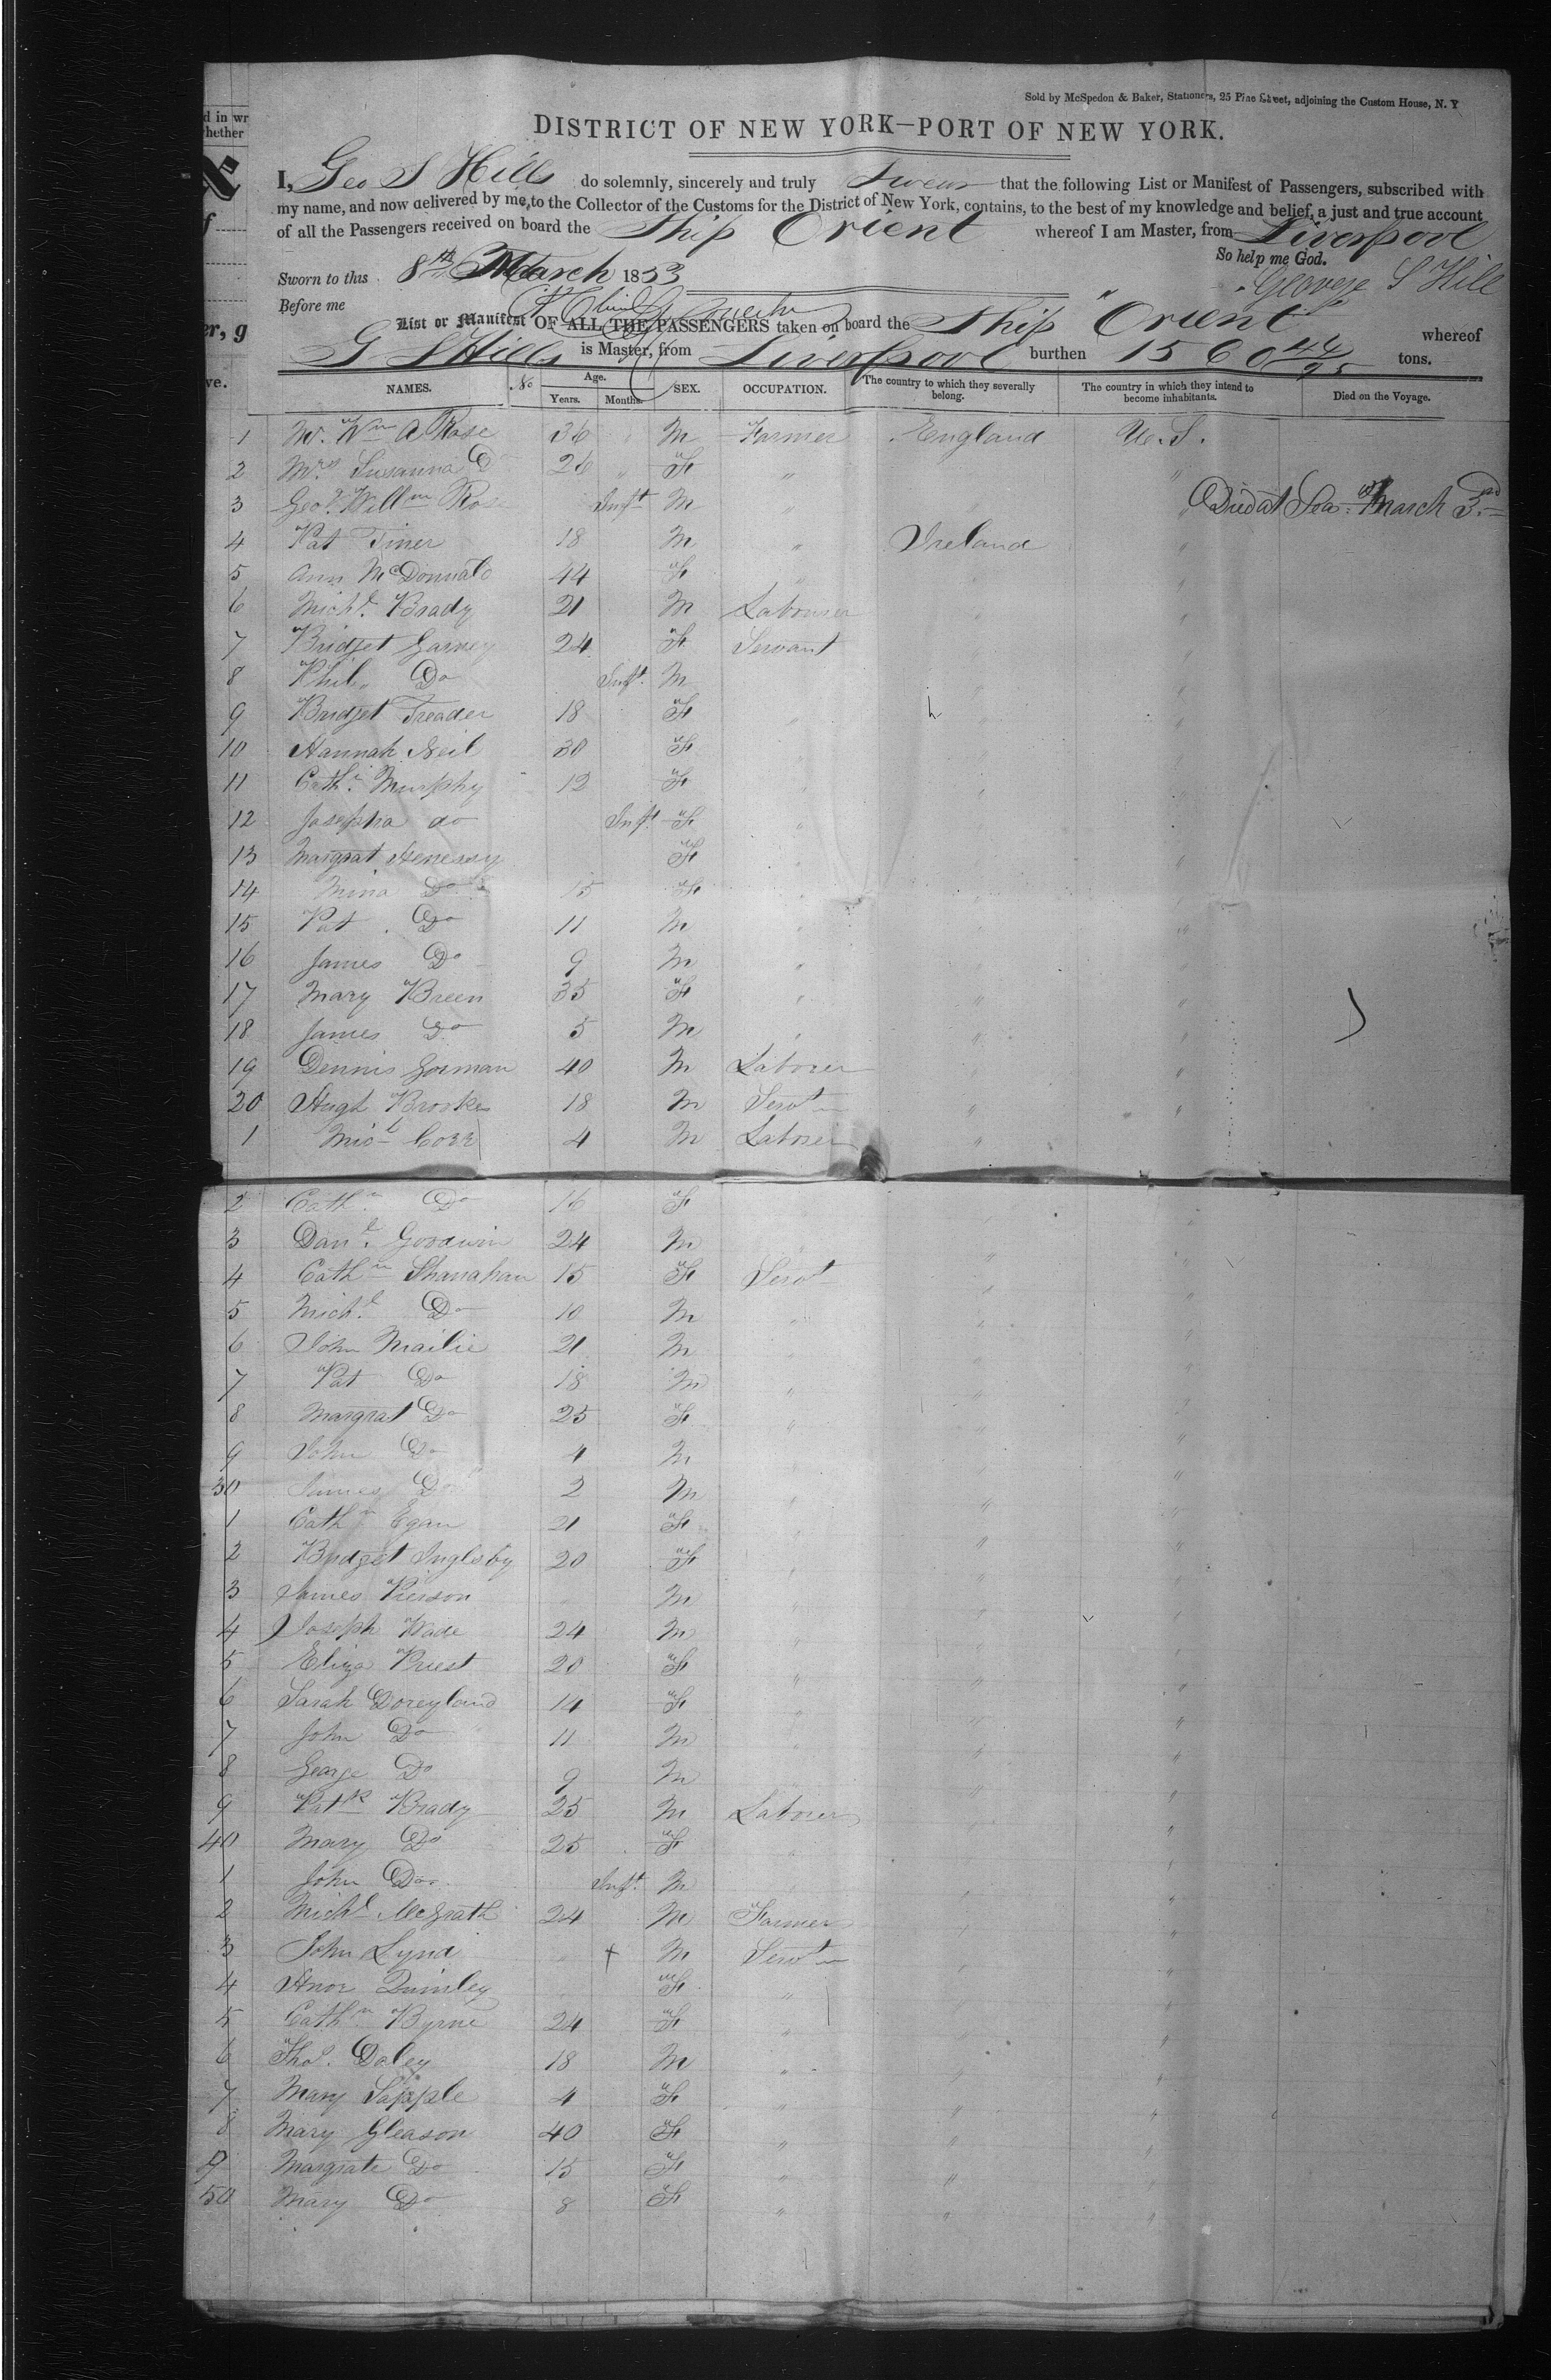 d in wr
hether
f
er, g
ve.
Sold by McSpedon & Baker, Stationers, 25 Pine Street, adjoining the Custom House, N. Y
DISTRICT OF NEW YORK—PORT OF NEW YORK.
I, Geo S Hills do solemnly, sincerely and truly Swear that the following List or Manifest of Passengers, subscribed with
my name, and now delivered by me, to the Collector of the Customs for the District of New York, contains, to the best of my knowledge and belief, a just and true account
of all the Passengers received on board the Ship Orient whereof I am Master, from Liverpool
So help me God.
Sworn to this 8th March 1853
George S Hill
Before me
List or Manifest OF ALL THE PASSENGERS taken on board the Ship Orient whereof
G S Hills is Master, from Liverpool burthen 1560 44/95 tons.
NAMES. No Age. Years. Months. SEX. OCCUPATION. The country to which they severally belong. The country in which they intend to become inhabitants. Died on the Voyage.
1 Mr. Wm A Rose 36 M Farmer England U.S.
2 Mrs Susanna Do 26 " F " "
3 Geo. Willm Ros Inft M " " Died at Sea March 3rd
4 Pat Tiner 18 M " Ireland "
5 Ann McDonnald 44 F " " "
6 Michl. Brady 21 M Labourer " "
7 Bridget Garney 24 F Servant " "
8 Phil Do Inft. M " "
9 Bridget Treader 18 F " " "
10 Hannah Neil 30 F " " "
11 Cath. Murphy 12 F " " "
12 Josepha do Inft. F " " "
13 Margrat Henessy F " " "
14 Mina Do 15 F " " "
15 Pat. Do 11 M " " "
16 James Do 9 M " " "
17 Mary Breen 35 F " " "
18 James Do 5 M " " "
19 Dennis Gorman 40 M Laborer " "
20 Hugh Brookes 18 M Servt " "
1 Micl Corr 4 M Laborer "
2 Cathn. Do 16 F " "
3 Danl. Goodwin 24 M " " "
4 Cathn Shanahan 15 F Servt " "
5 Michl. Do 10 M " " "
6 John Mailie 21 M " " "
7 Pat Do 18 M " " "
8 Margrat Do 25 F " " "
9 John Do 4 M " " "
30 James Do 2 M " " "
1 Cathn Egan 21 F " " "
2 Bridget Inglesby 20 F " " "
3 James Pierson M " " "
4 Joseph Wade 24 M " " "
5 Eliza Priest 20 F " " "
6 Sarah Doreyland 14 F " " "
7 John Do 11 M " " "
8 George Do 9 M " " "
9 Patk Brady 25 M Laborer " "
40 Mary Do 25 F " " "
1 John Do Inft. M " " "
2 Michl McGrath 24 M Farmer " "
3 John Lynd + M Servt " "
4 Quinley F " " "
5 Cathn Byrne 24 F " " "
6 Thos. Daley 18 M " " "
7 Mary Sapple 4 F " " "
8 Mary Gleason 40 F " " "
9 Margrate Do 15 F " " "
50 Mary Do 8 F " " "